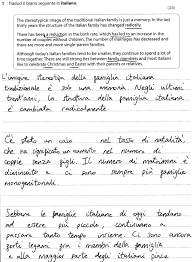 1 Traduci il brano seguente in italiano.
(20)
The stereotypical image of the traditional Italian family is just a memory. In the last
thirty years the structure of the Italian family has changed radically.
There has been a reduction in the birth rate, which has led to an increase in the
number of couples without children. The number of marriages has decreased and
there are more and more single-parent families.
Although today's Italian families tend to be smaller, they continue to spend a lot of
time together. There are still strong ties between family members and most Italians
like to celebrate Christmas and Easter with their parents or relatives.
L'imagine steretipa della famiglia italiana
tradizionale è solo una memoria. Negli ultimi
trent'anni, la struttura della famiglia italiana
è cambiata radicalmente.
C'è stato un calo nel tasso di natalità,
che ha significato un aumento nel numero di
coppie senza figli. Il numero di matrimoni è
diminuito e ci sono sempre più famiglie
monogenitoriali.
Sebbene le famiglie italiane di oggi tendano
ad essere più piccole, continuano a
passare tanto tempo insieme. Ci sono ancora
forti legami tra i membri della famiglia
e alla maggior parte degli italiani piace